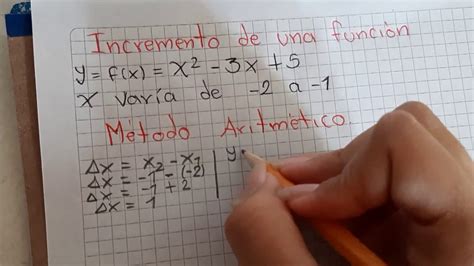 Incremento de una función
y = f(x) = x² - 3x + 5
x varía de -2 a -1
Método Aritmético.
Δx = x₂ - x₁ | y
Δx = -1 - (-2)
Δx = -1 + 2
Δx = 1